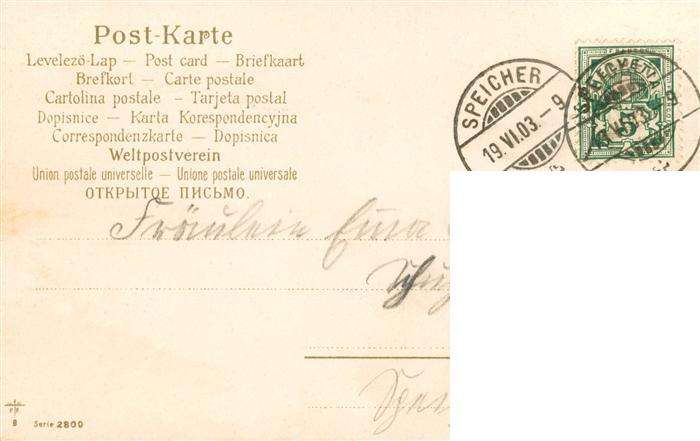 Post-Karte
Levelezö-Lap — Post card — Briefkaart
Brefkort — Carte postale
Cartolina postale - Tarjeta postal
Dopisnice — Karta Korespondencyjna
Correspondenzkarte — Dopisnica
Weltpostverein
Union postale universelle — Unione postale universale
ОТКРЫТОЕ ПИСЬМО.
SPEICHER
19.VI.03.-9
HELVETIA
5
Fräulein
Serie 2800
8